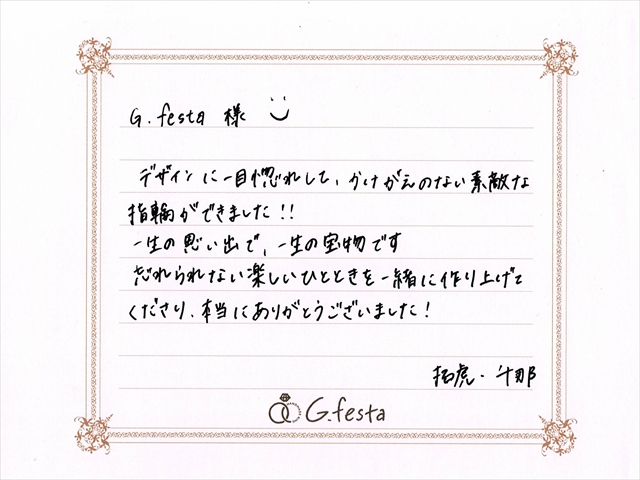 G.festa 様
デザインに一目惚れして、かけがえのない素敵な
指輪ができました!!
一生の思い出で、一生の宝物です
忘れられない楽しいひとときを一緒に作り上げて
くださり、本当にありがとうございました!
拓虎・千那
G.festa